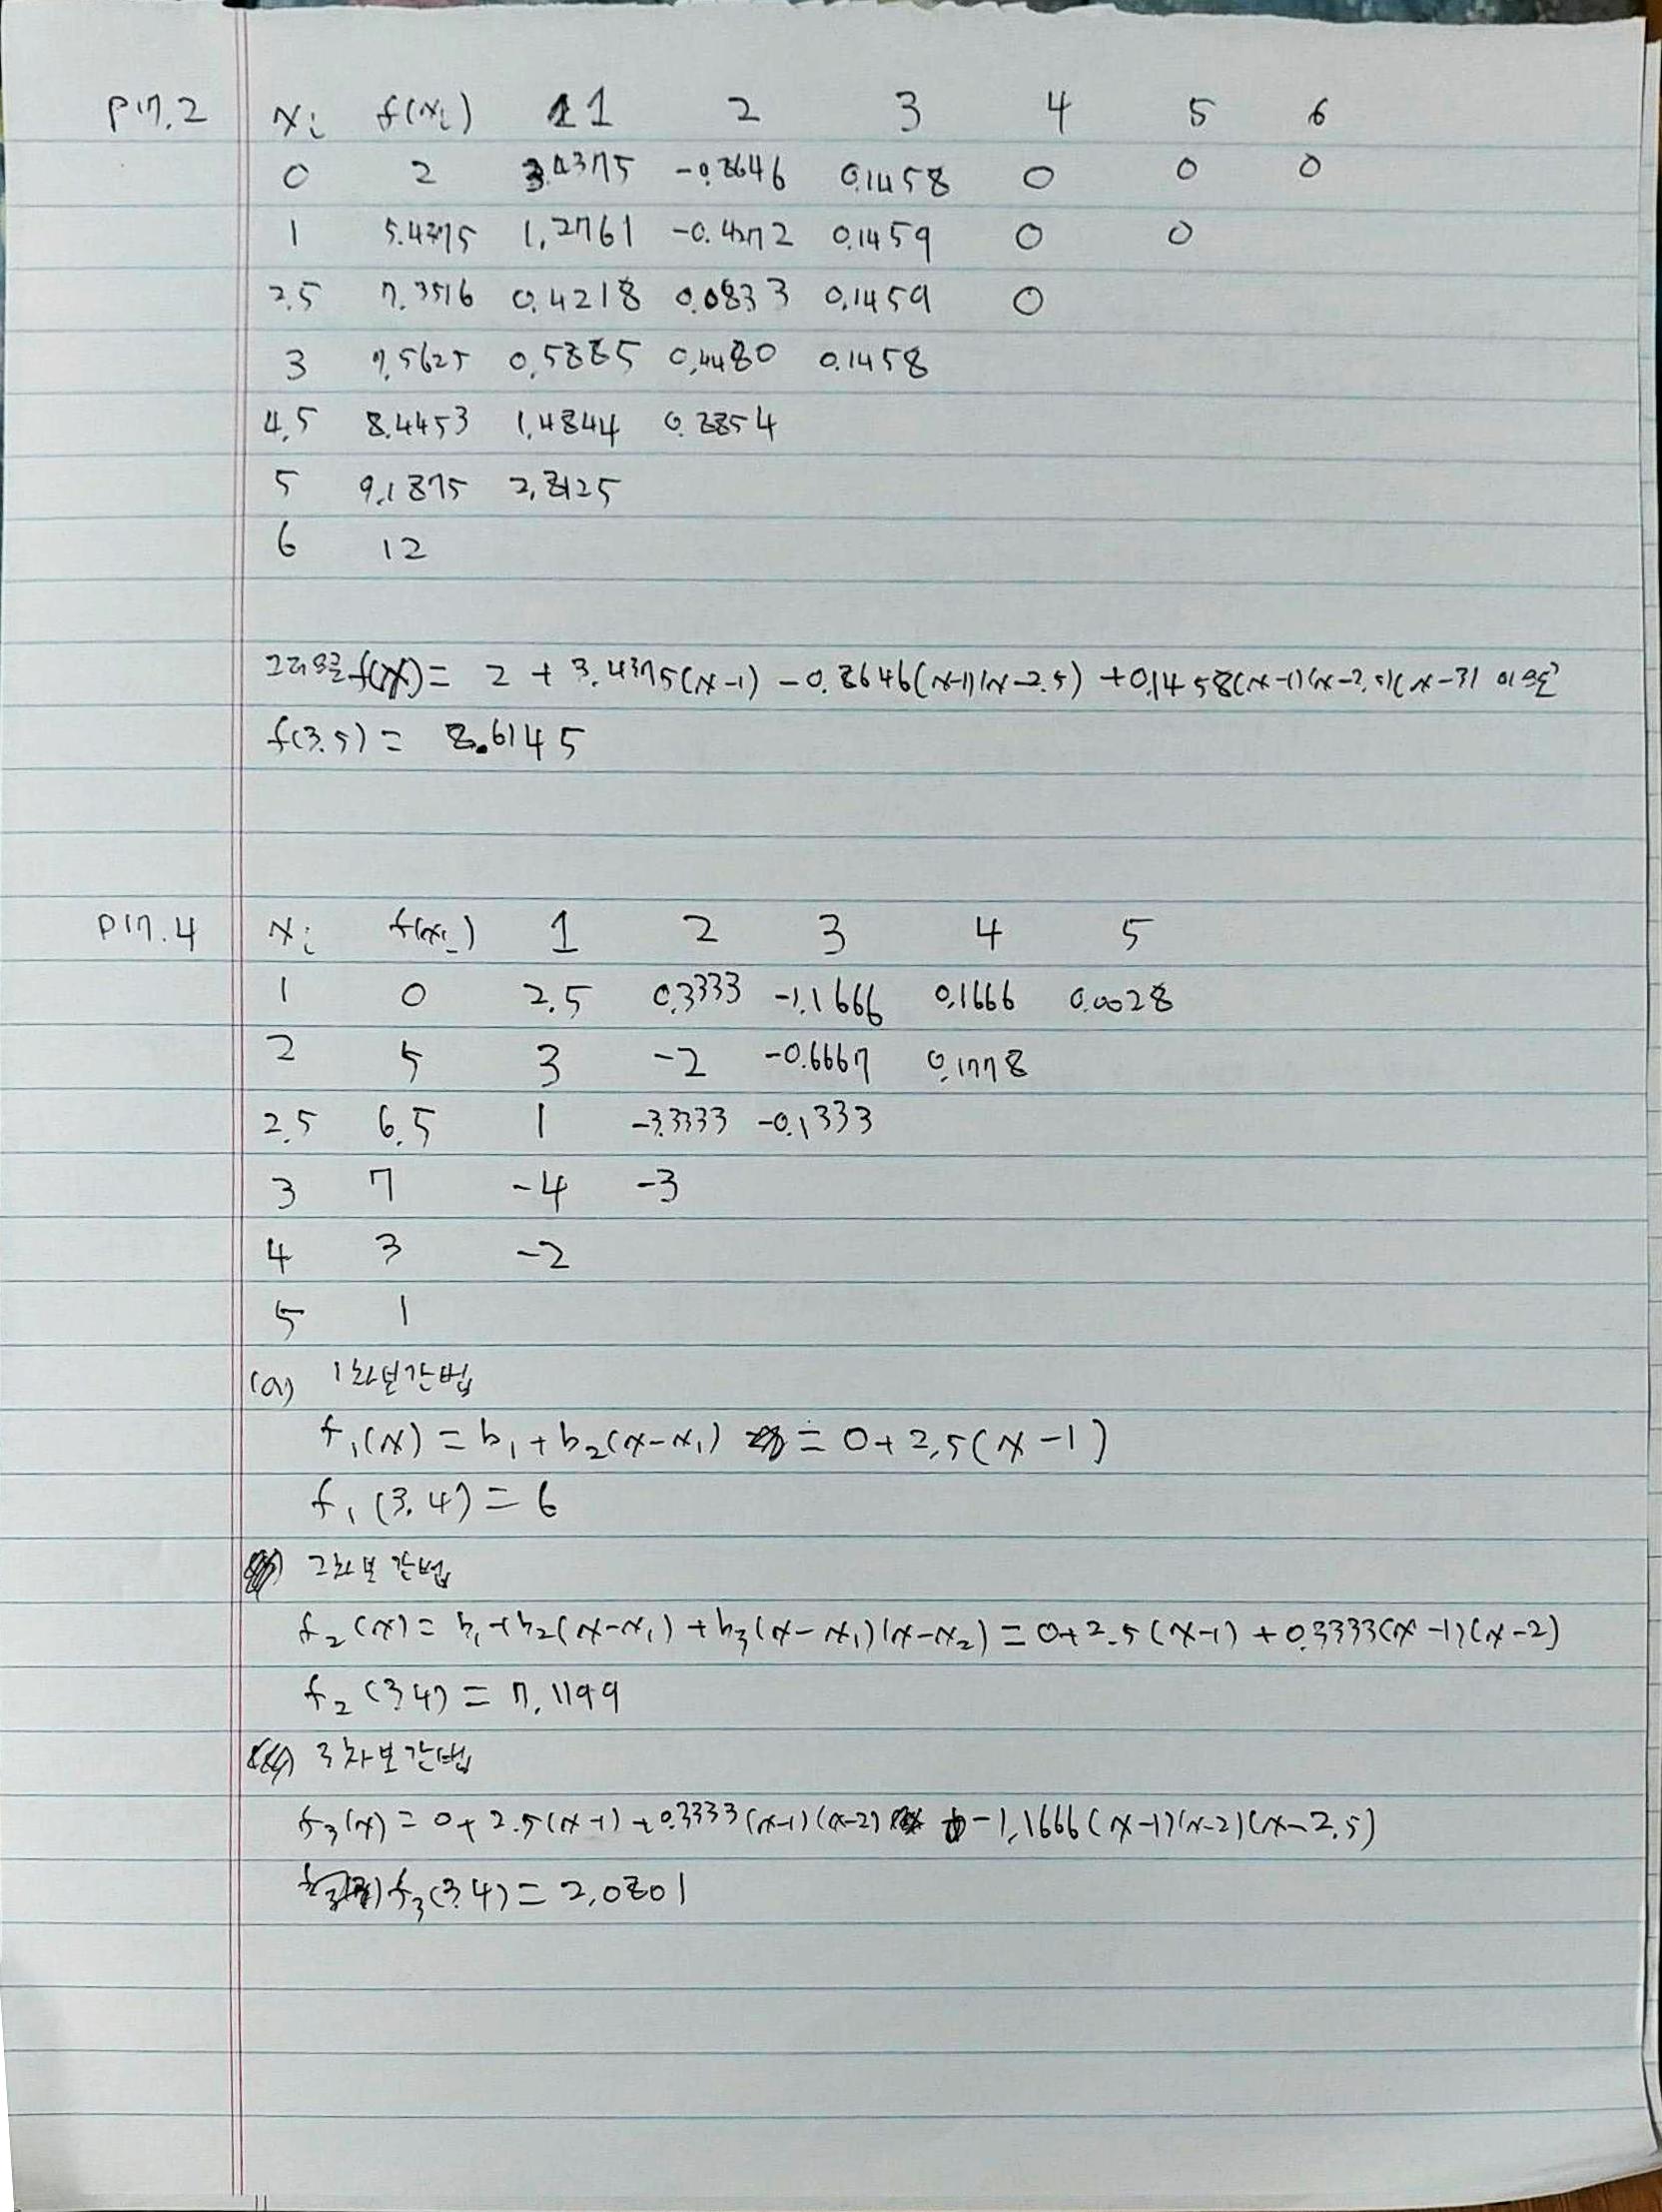 P17.2 xi f(xi) 1 2 3 4 5 6
0 2 3.4375 -0.8646 0.1458 0 0 0
1 5.4375 1.2761 -0.4272 0.1459 0 0
2.5 7.3516 0.4218 0.0833 0.1459 0
3 7.5625 0.5885 0.4480 0.1458
4.5 8.4453 1.4844 0.8854
5 9.1875 2.8125
6 12
그러므로 f(x) = 2 + 3.4375(x-1) - 0.8646(x-1)(x-2.5) + 0.1458(x-1)(x-2.5)(x-3) 이므로
f(3.5) = 8.6145
P17.4 xi f(xi) 1 2 3 4 5
1 0 2.5 0.3333 -1.1666 0.1666 0.0028
2 5 3 -2 -0.6667 0.1778
2.5 6.5 1 -3.3333 -0.1333
3 7 -4 -3
4 3 -2
5 1
(a) 1차보간법
f₁(x) = b₁ + b₂(x-x₁) = 0 + 2.5(x-1)
f₁(3.4) = 6
2차보간법
f₂(x) = b₁ + b₂(x-x₁) + b₃(x-x₁)(x-x₂) = 0 + 2.5(x-1) + 0.3333(x-1)(x-2)
f₂(3.4) = 7.1199
3차보간법
f₃(x) = 0 + 2.5(x-1) + 0.3333(x-1)(x-2) - 1.1666(x-1)(x-2)(x-2.5)
f₃(3.4) = 2.0801